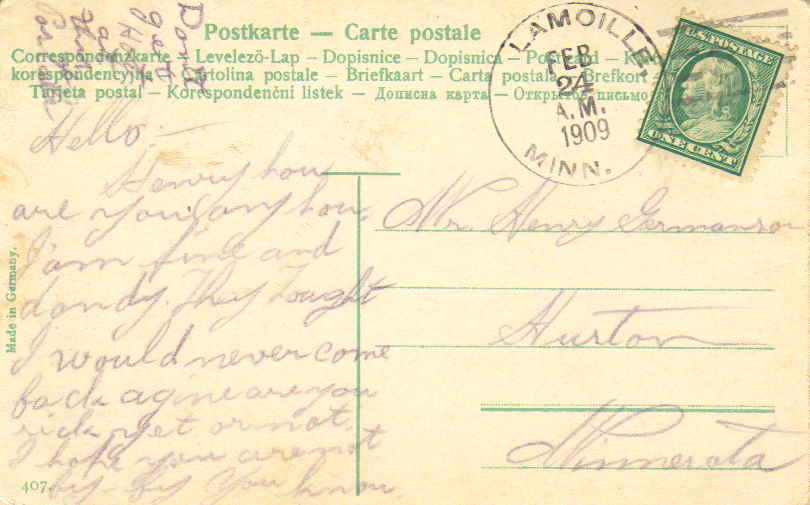 Postkarte — Carte postale
Correspondenzkarte – Levelező-Lap – Dopisnice – Dopisnica –
korespondencyjna – Cartolina postale – Briefkaart – Carta postala – Brefkort
Tarjeta postal – Korespondenční listek – Дописна карта – Открытое письмо
LAMOILLE
FEB
24
A.M.
1909
MINN.
U.S. POSTAGE
ONE CENT
Hello –
Henry how
are you any how
I am fine and
dandy. They tought
I would never come
back agine are you
sick yet or not.
I hope you are not
by-by You know
Mr. Henry Germanson
Huston
Minnesota
Made in Germany.
407
Dont
get